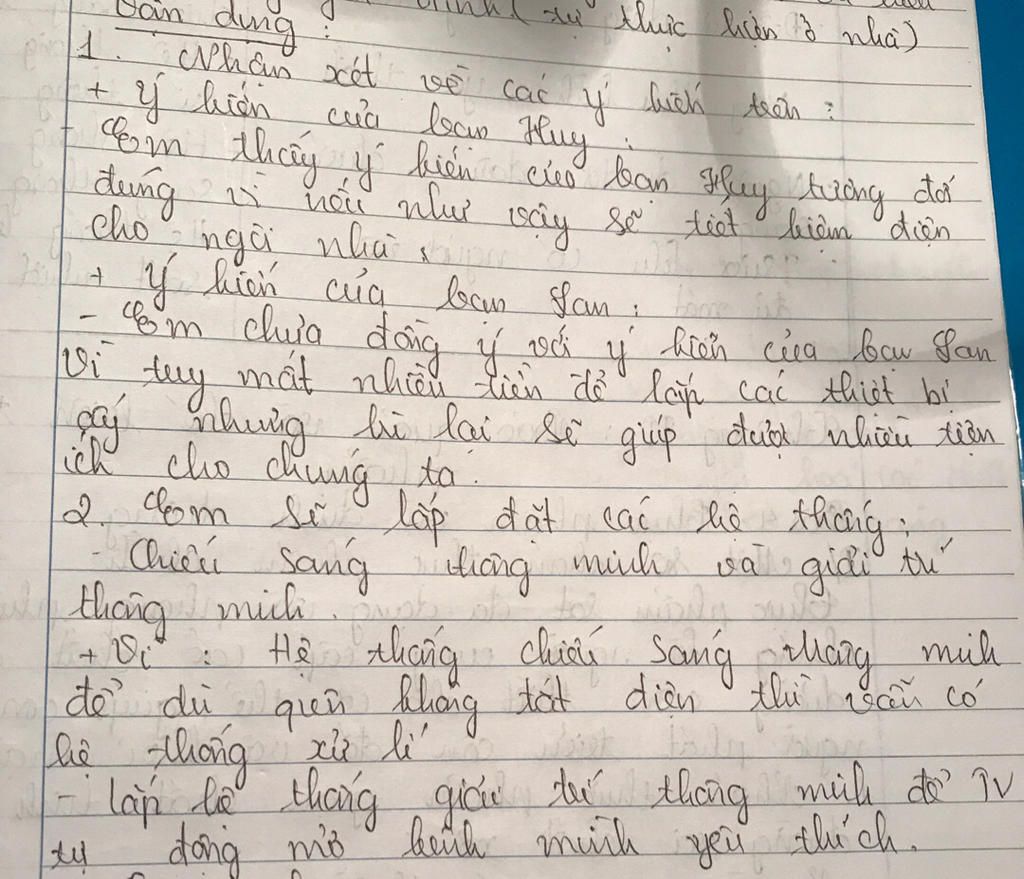 trình ( tự thực hiện ở nhà)
Vận dụng :
1. Nhận xét về các ý kiến trên :
+ Ý kiến của bạn Huy :
- Em thấy ý kiến của bạn Huy tương đối
đúng vì nếu như vậy sẽ tiết kiệm điện
cho ngôi nhà.
+ Ý kiến của bạn Lan :
- Em chưa đồng ý với ý kiến của bạn Lan
Vì tuy mất nhiều tiền để lắp các thiết bị
ấy nhưng bù lại sẽ giúp được nhiều tiện
ích cho chúng ta.
2. Em sẽ lắp đặt các hệ thống :
- Chiếu sáng thông minh và giải trí
thông minh.
+ Vì : Hệ thống chiếu sáng thông minh
để dù quên không tắt điện thì vẫn có
hệ thống xử lí
- lắp hệ thống giải trí thông minh để TV
tự động mở kênh mình yêu thích.